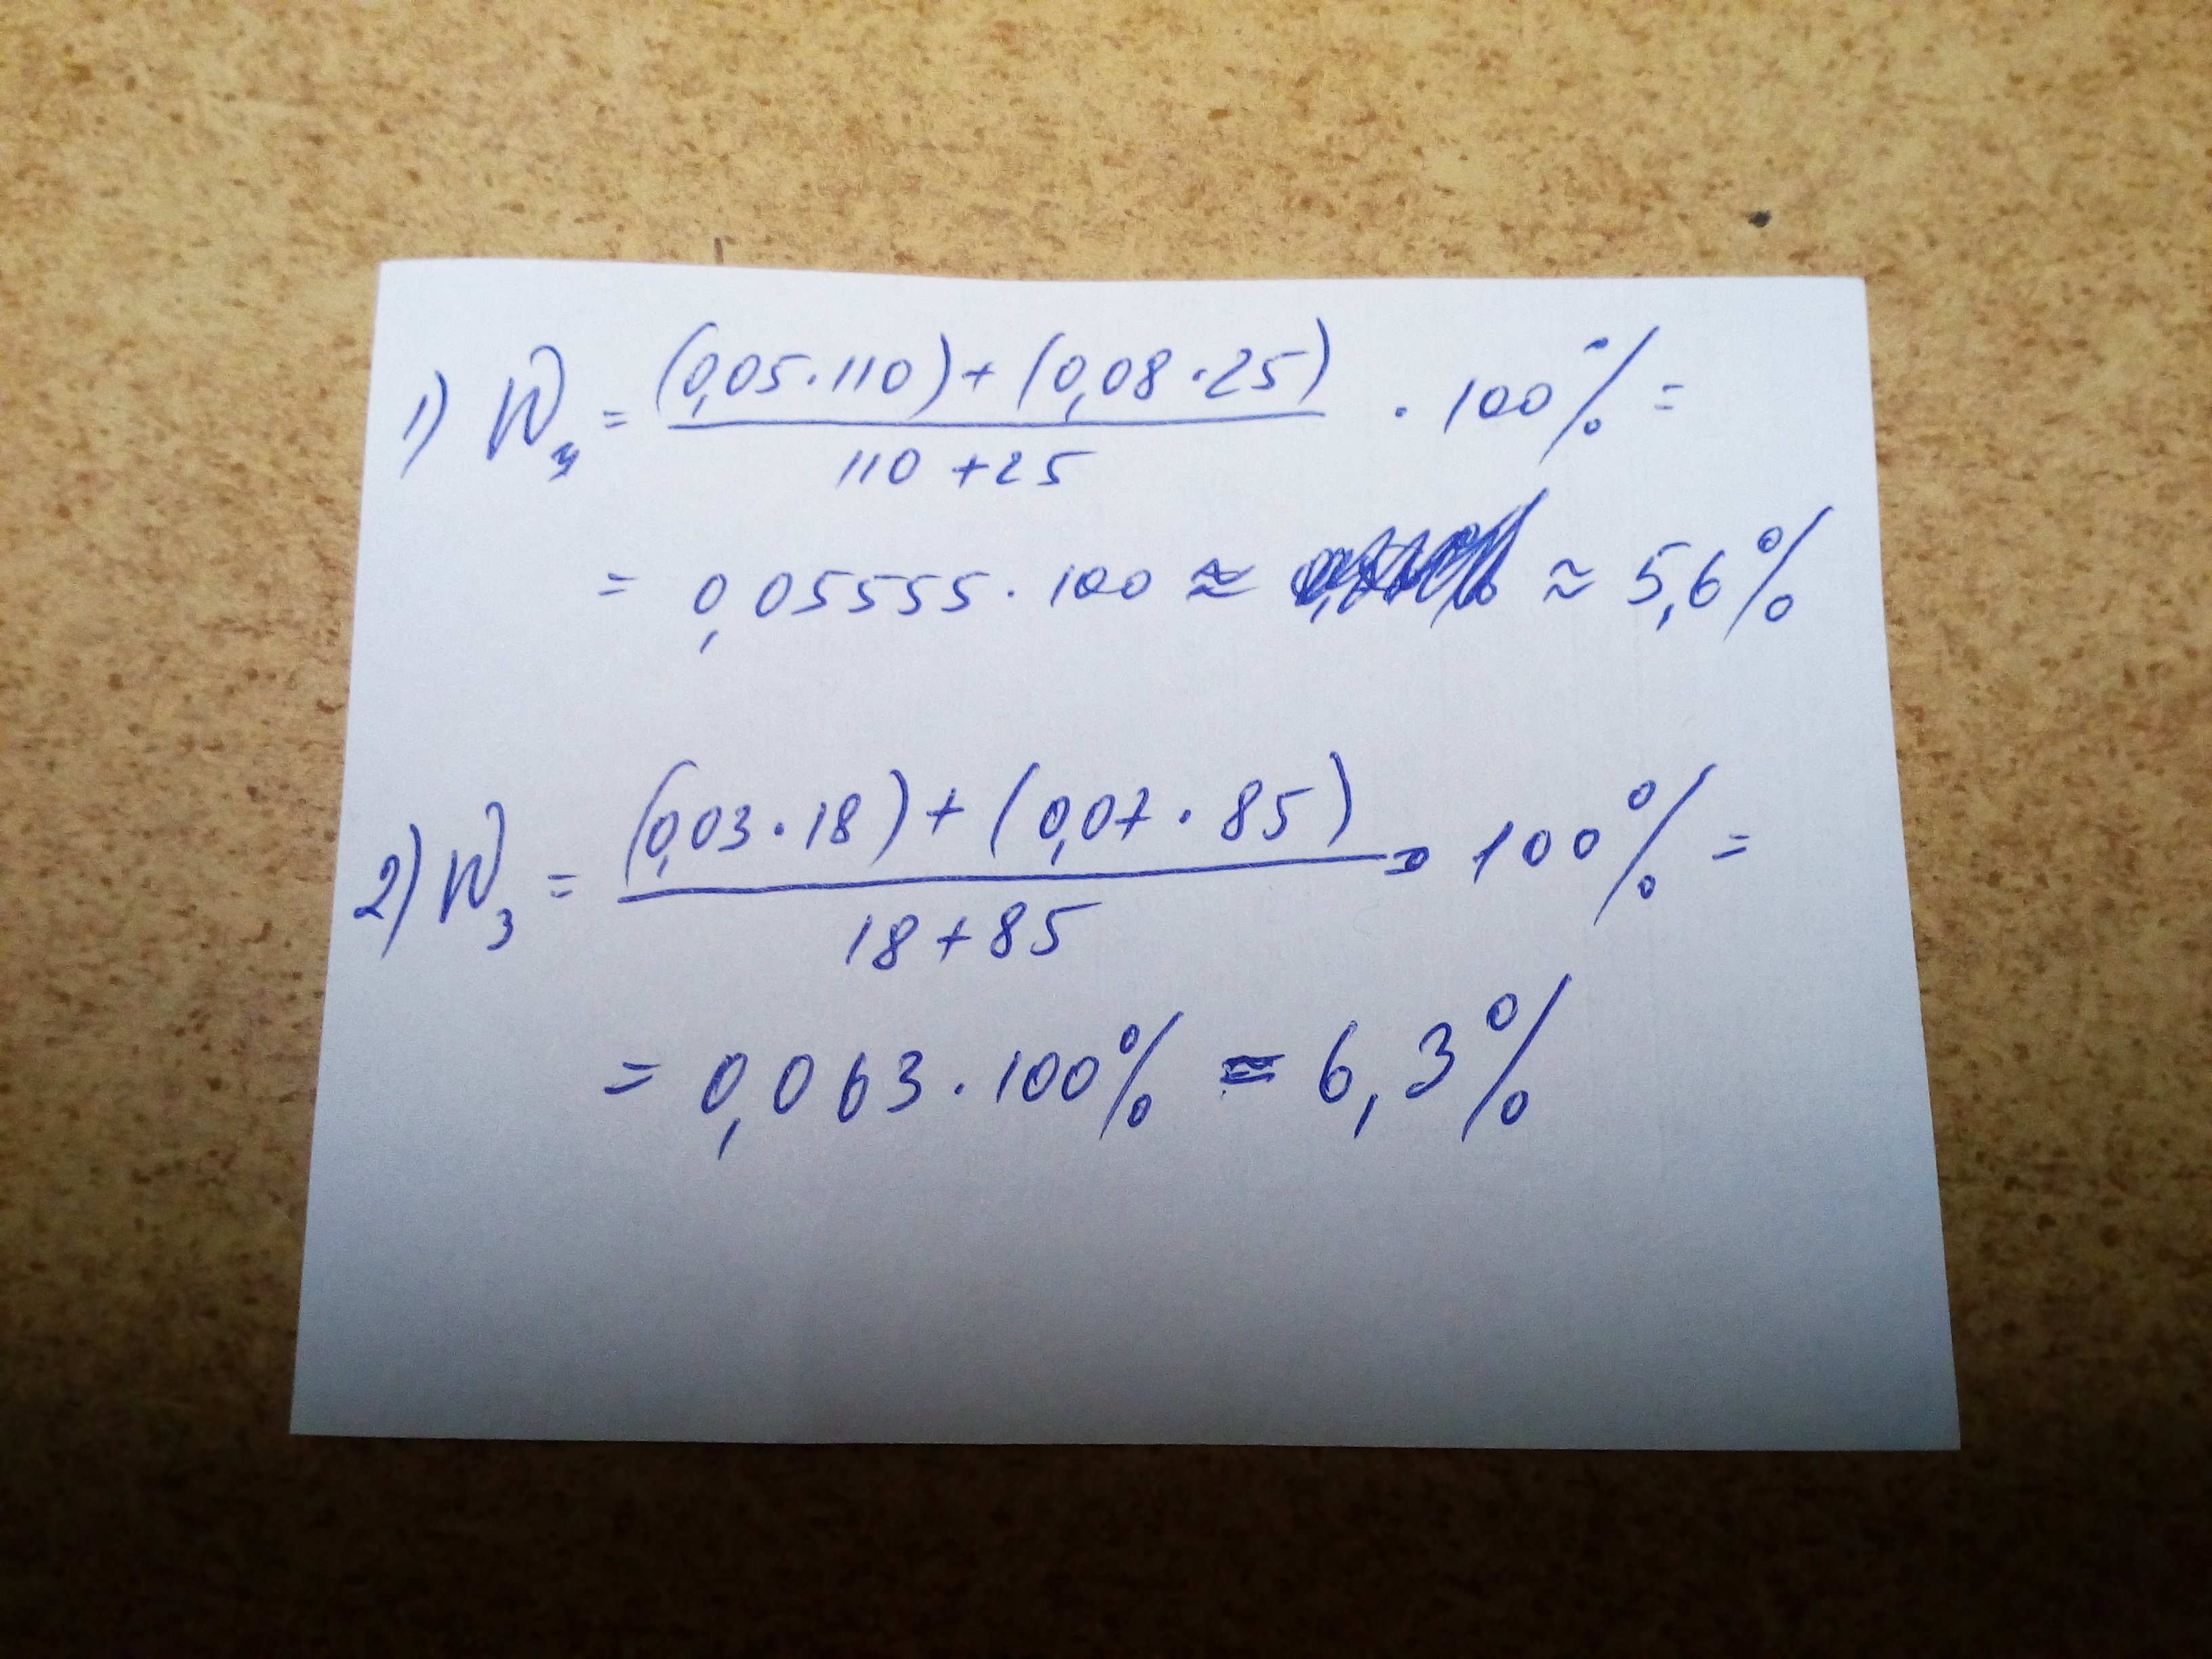 1) W = (0,05·110)+(0,08·25) / 110+25 · 100% =
= 0,05555·100 ≈ ≈ 5,6%
2) W₃ = (0,03·18)+(0,07·85) / 18+85 · 100% =
= 0,063·100% = 6,3%